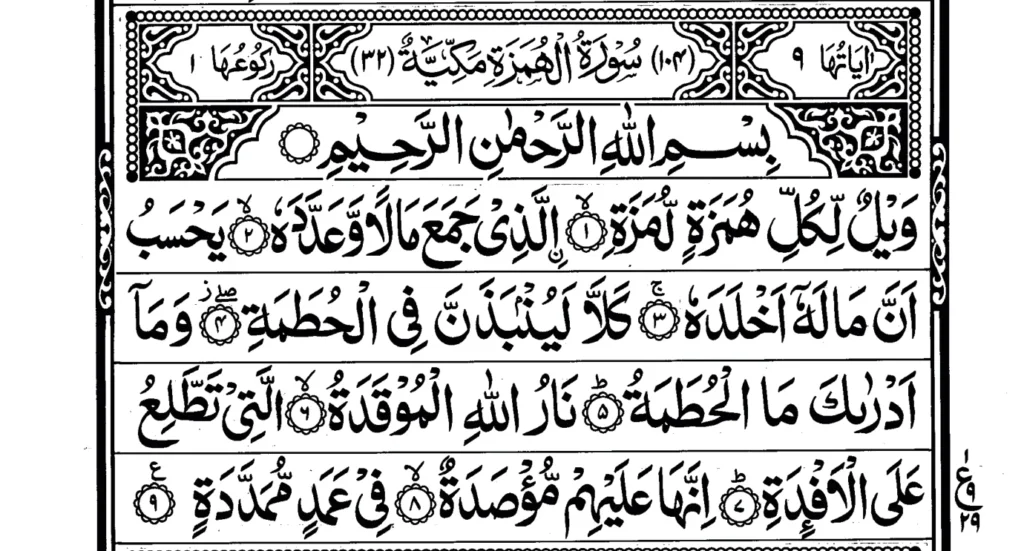 اٰيَاتُهَا ٩ (١٠٤) سُوْرَةُ الْهُمَزَةِ مَكِّيَّةٌ (٣٢) رُكُوْعُهَا ١
بِسْمِ اللّٰهِ الرَّحْمٰنِ الرَّحِيْمِ
وَيْلٌ لِّكُلِّ هُمَزَةٍ لُّمَزَةِ ۙ﴿١﴾ ِ۟نِ الَّذِيْ جَمَعَ مَالًا وَّعَدَّدَهٗ ۙ﴿٢﴾ يَحْسَبُ
اَنَّ مَالَهٗۤ اَخْلَدَهٗ ۚ﴿٣﴾ كَلَّا لَيُنْۢبَذَنَّ فِي الْحُطَمَةِ ۖز﴿٤﴾ وَمَاۤ
اَدْرٰىكَ مَا الْحُطَمَةُ ؕ﴿٥﴾ نَارُ اللّٰهِ الْمُوْقَدَةُ ۙ﴿٦﴾ الَّتِيْ تَطَّلِعُ
عَلَى الْاَفْـِٕدَةِ ؕ﴿٧﴾ اِنَّهَا عَلَيْهِمْ مُّؤْصَدَةٌ ۙ﴿٨﴾ فِيْ عَمَدٍ مُّمَدَّدَةٍ ﴿٩﴾ ع
١
ع ٩
٢٩